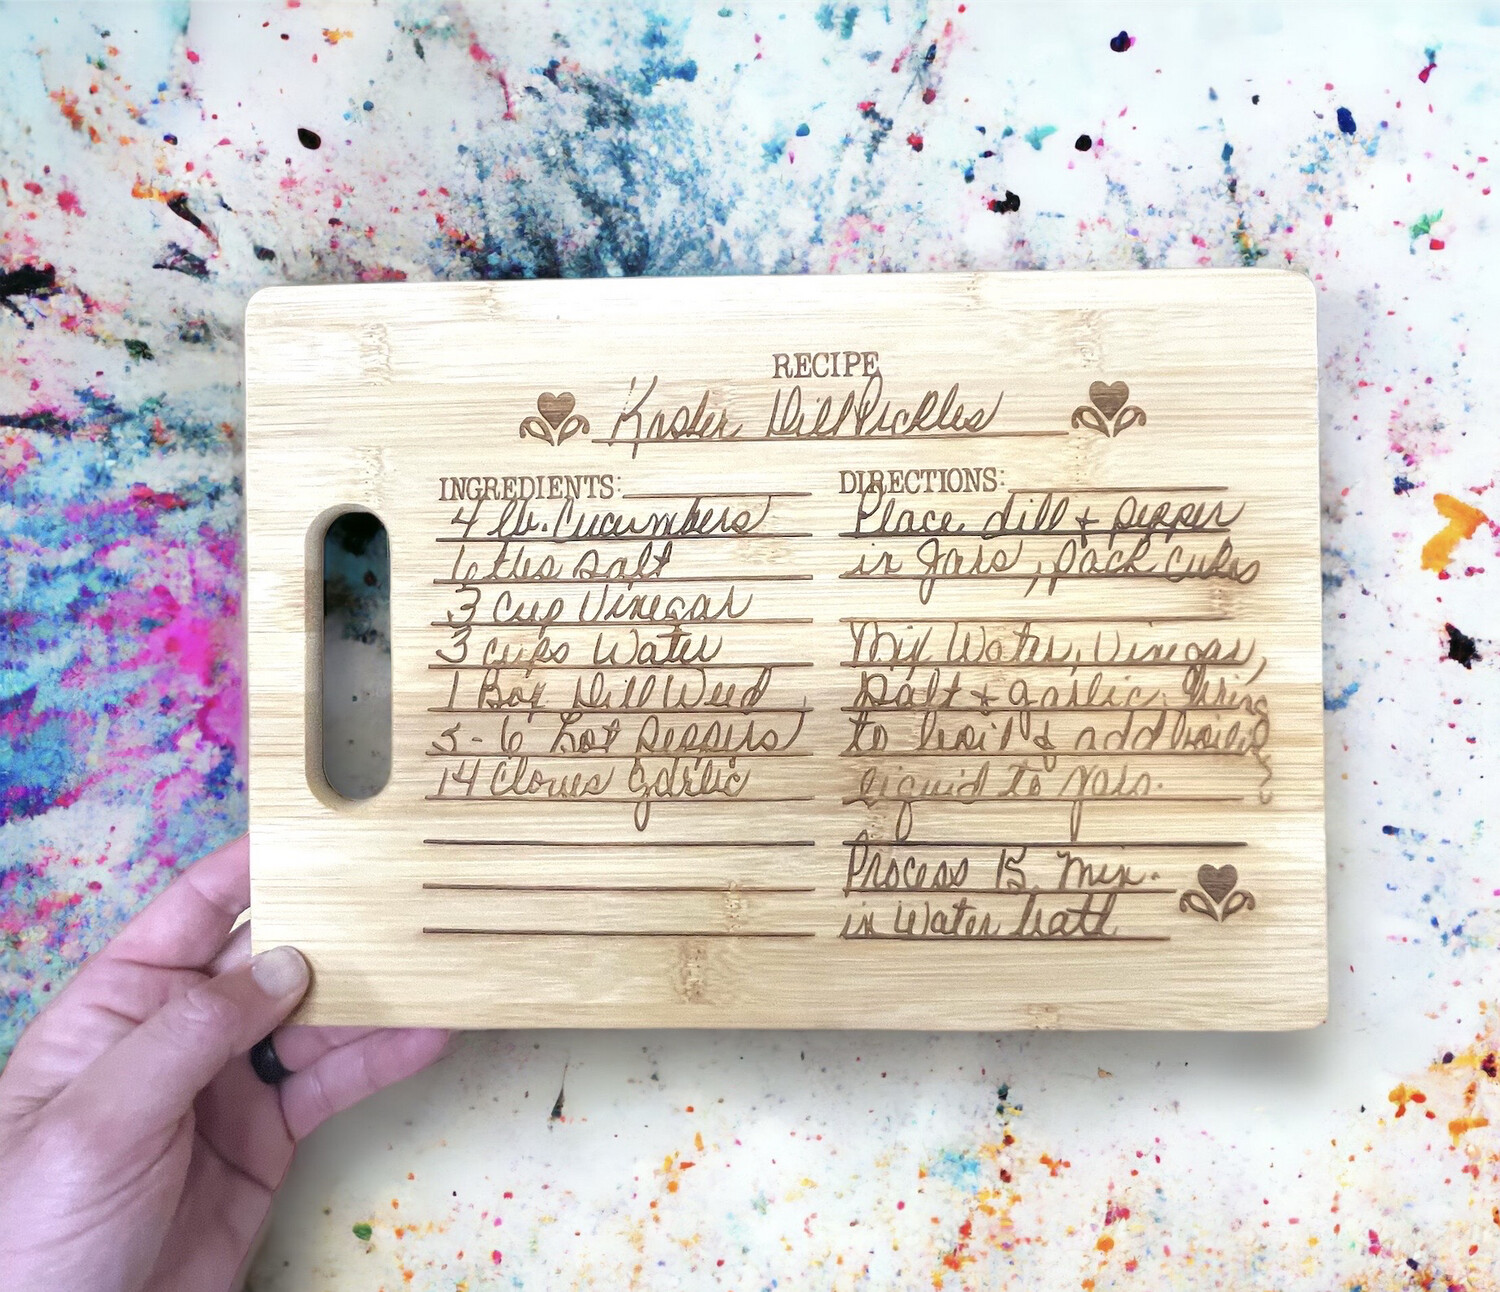 RECIPE
Kosher Dill Pickles
INGREDIENTS:
4 lb. Cucumbers
6 tbs salt
3 cup Vinegar
3 cups Water
1 Box Dill Weed
5-6 hot peppers
14 Cloves Garlic
DIRECTIONS:
Place dill & pepper
in Jars, pack cukes
Mix Water, Vinegar,
Salt & garlic. Bring
to boil & add boiling
liquid to jars.
Process 15 Min.
in Water bath